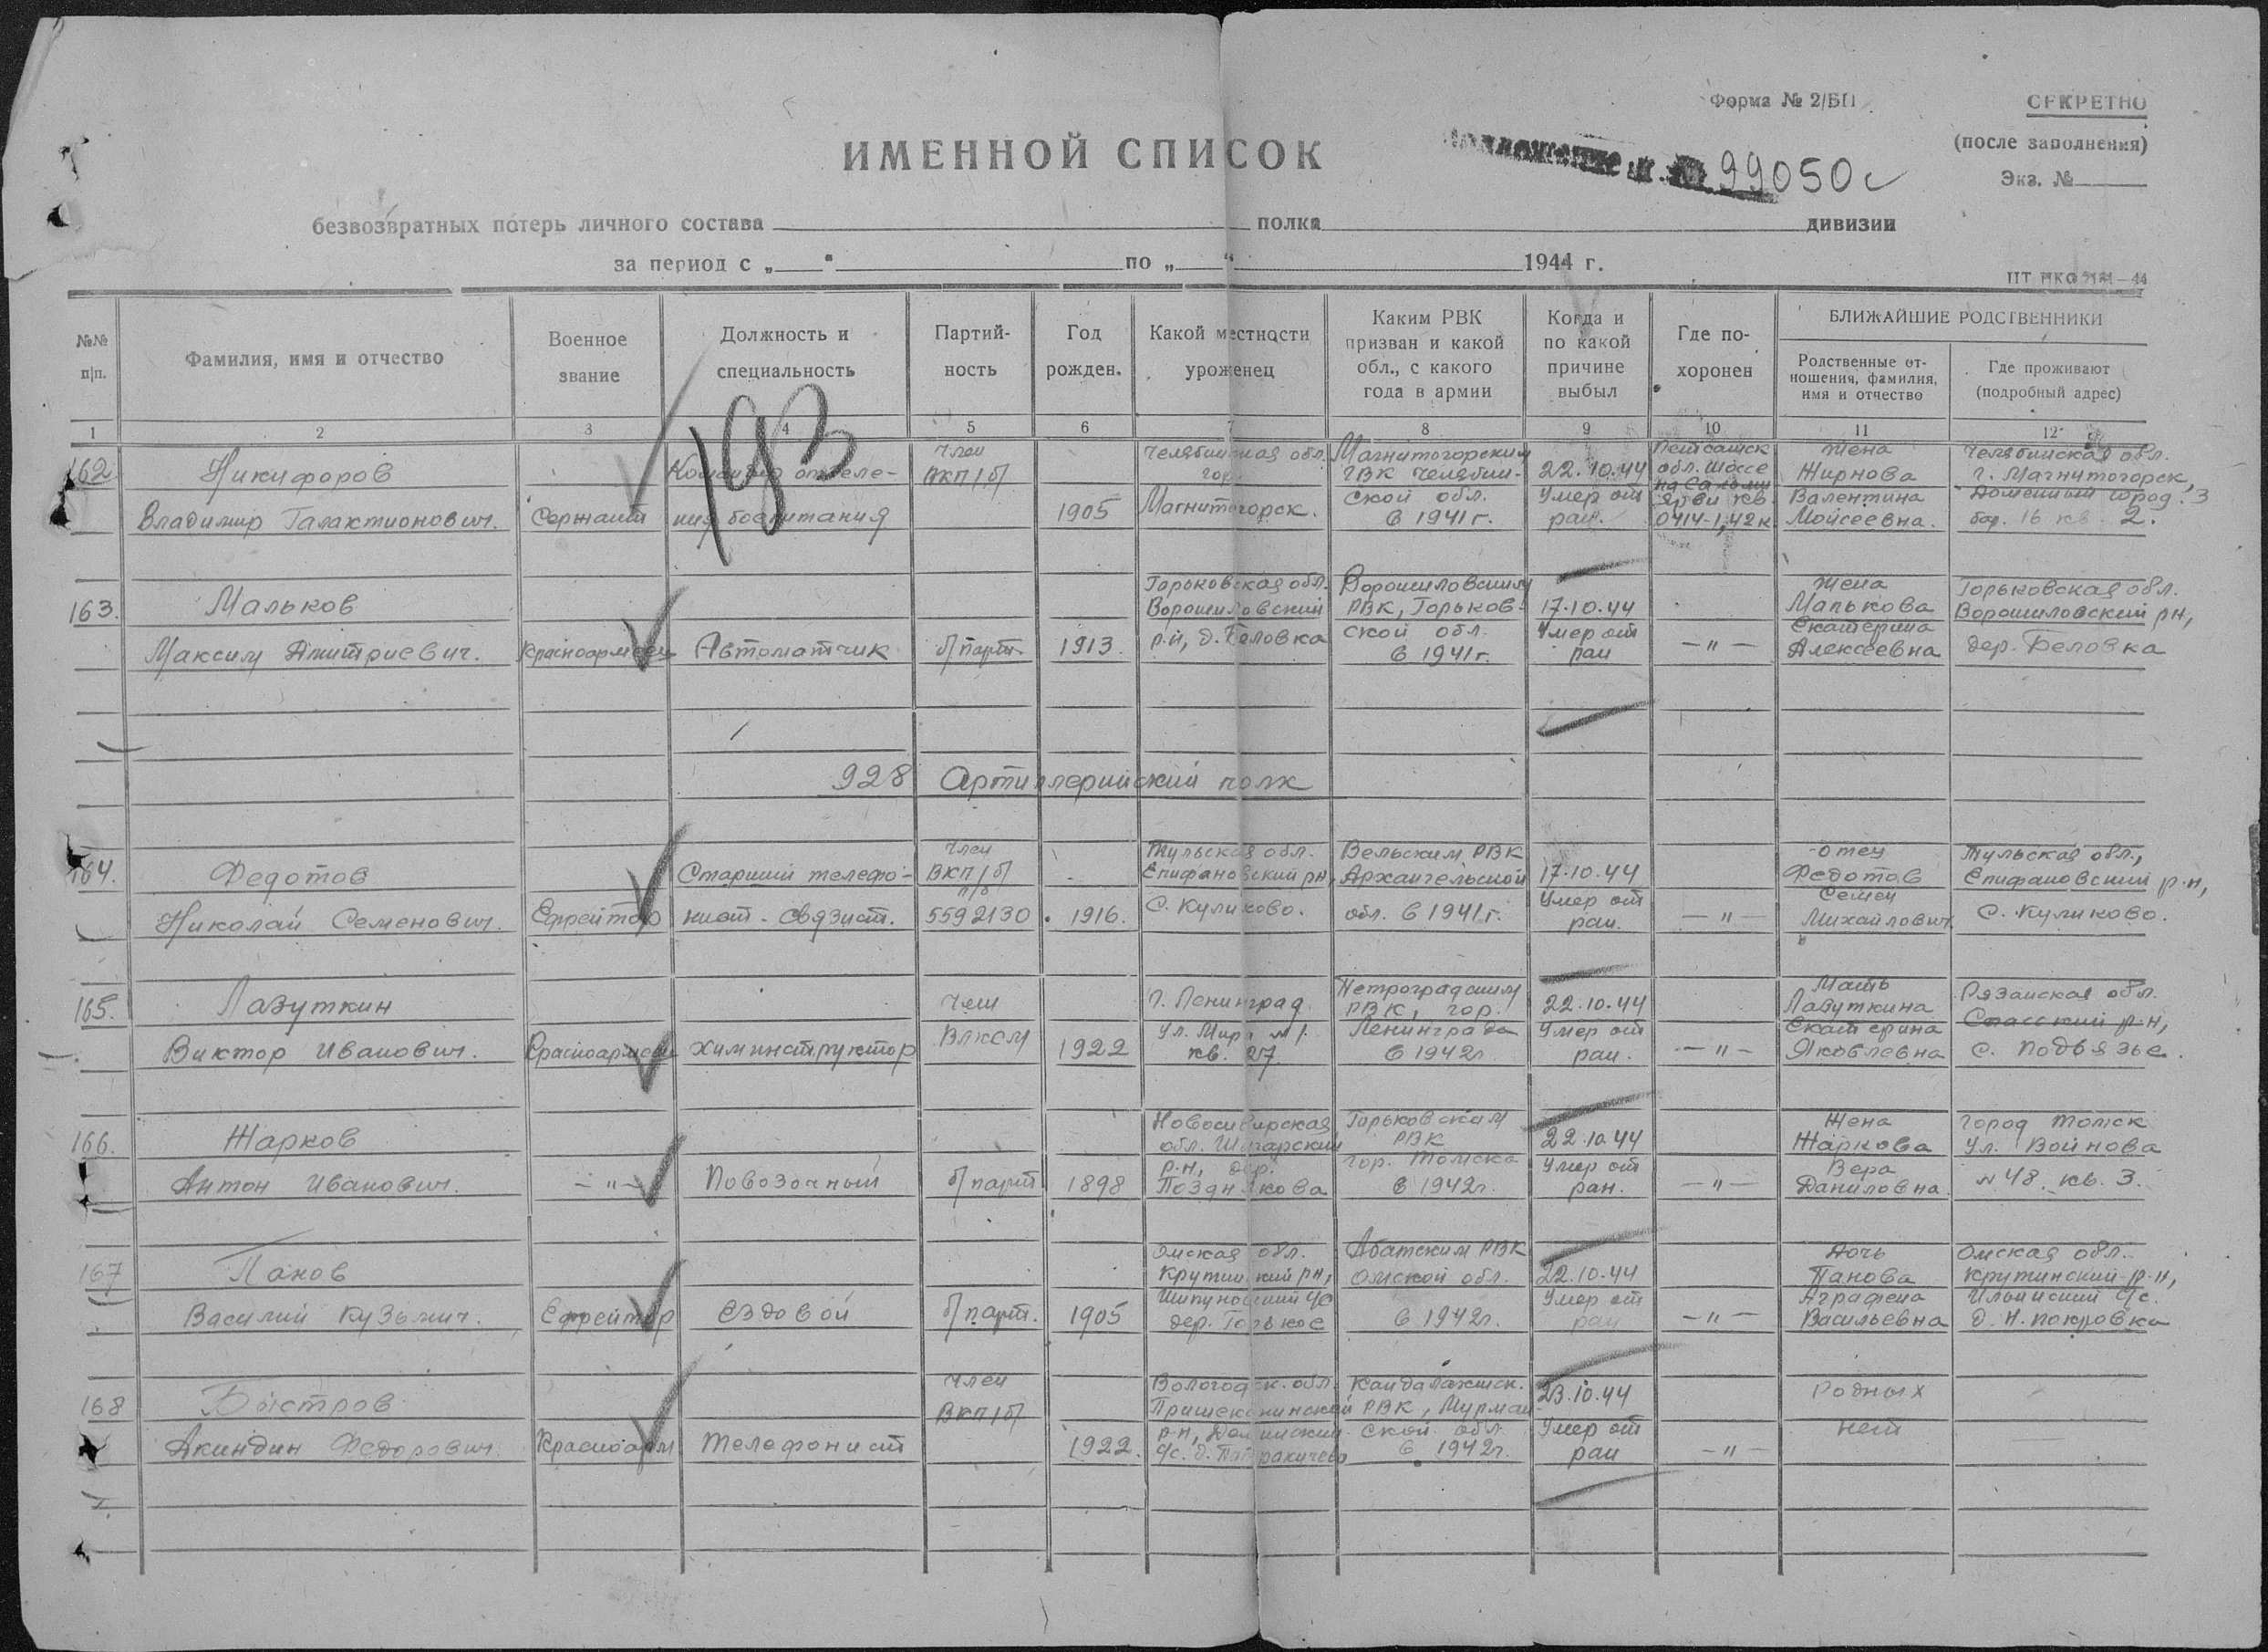 Форма № 2/БП
СЕКРЕТНО
(после заполнения)
Экз. №
ИМЕННОЙ СПИСОК
99050с
безвозвратных потерь личного состава полка дивизии
за период с „ “ по „ “ 1944 г.
№№ п/п.
Фамилия, имя и отчество
Военное звание
Должность и специальность
Партийность
Год рожден.
Какой местности уроженец
Каким РВК призван и какой обл., с какого года в армии
Когда и по какой причине выбыл
Где похоронен
БЛИЖАЙШИЕ РОДСТВЕННИКИ
Родственные отношения, фамилия, имя и отчество
Где проживают (подробный адрес)
1 2 3 4 5 6 7 8 9 10 11 12
193
162 Никифоров Владимир Галактионович.
Сержант
Командир отделения боепитания
Член ВКП/б/
1905
Челябинская обл. гор. Магнитогорск.
Магнитогорским ГВК Челябинской обл. в 1941 г.
22.10.44 Умер от ран.
обл. шоссе кв. 0414-1,42 к
Жена Жирнова Валентина Мойсеевна.
Челябинская обл. г. Магнитогорск, город. 3 бар. 16 кв. 2.
163. Мальков Максим Дмитриевич.
Красноармеец
Автоматчик
б/парт.
1913.
Горьковская обл. Ворошиловский р-н, д. Беловка
Ворошиловским РВК, Горьковской обл. в 1941 г.
17.10.44 Умер от ран
— " —
Жена Малькова Екатерина Алексеевна
Горьковская обл. Ворошиловский рн, дер. Беловка
928 Артиллерийский полк
164. Федотов Николай Семенович.
Ефрейтор
Старший телефонист-связист.
Член ВКП/б/ п/б 5592130
1916.
Тульская обл. Епифановский рн, с. Куликово.
Вельским РВК Архангельской обл. в 1941 г.
17.10.44 Умер от ран.
— " —
отец Федотов Семен Михайлович
Тульская обл., Епифановский р-н, с. Куликово.
165. Лазуткин Виктор Иванович.
Красноармеец
Хим инструктор
Член ВЛКСМ
1922
г. Ленинград ул. Мира кв. 27.
Петроградским РВК, гор. Ленинграда в 1942 г
22.10.44 Умер от ран.
— " —
Мать Лазуткина Екатерина Яковлевна
Рязанская обл. Спасский р-н, с. Подвязье.
166. Жарков Антон Иванович.
— " —
Повозочный
б/парт
1898
Новосибирская обл. Шегарский р-н, дер. Позднякова
Горьковским РВК гор. Томска в 1942 г.
22.10.44 Умер от ран.
— " —
Жена Жаркова Вера Даниловна.
город Томск ул. Войнова №48. кв. 3.
167 Панов Василий Кузьмич.
Ефрейтор
Ездовой
б/парт.
1905
Омская обл. Крутинский рн, Шипуновский с/с дер. Горькое
Абатским РВК Омской обл. в 1942 г.
22.10.44 Умер от ран
— " —
Дочь Панова Аграфена Васильевна
Омская обл. Крутинский р-н, с/с. д. Н. Покровка
168 Быстров Акиндин Федорович.
Красноарм
Телефонист
Член ВКП/б/
1922.
Вологодск. обл. р-н, с/с. д.
Кандалакшск. РВК, Мурманской обл. в 1942 г.
23.10.44 Умер от ран
— " —
Родных нет